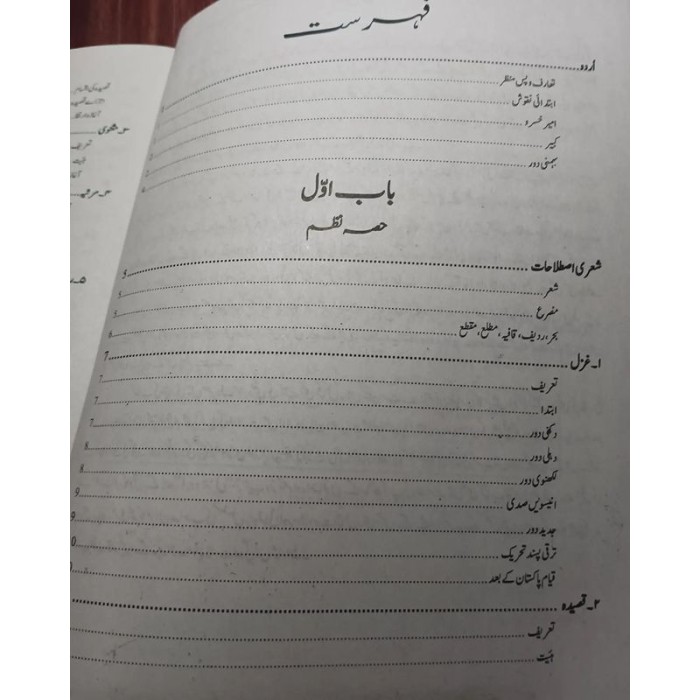 فہرست
اُردو
تعارف و پس منظر
ابتدائی نقوش
امیر خسرو
کبیر
بہمنی دور
باب اوّل
حصہ نظم
شعری اصطلاحات 5
شعر 5
مصرع 5
بحر، ردیف، قافیہ، مطلع، مقطع 6
۱۔ غزل 7
تعریف 7
ابتدا 7
دکنی دور 7
دہلی دور 8
لکھنوی دور 8
انیسویں صدی 9
جدید دور 9
ترقی پسند تحریک 0
قیام پاکستان کے بعد 0
۲۔ قصیدہ
تعریف
ہیئت